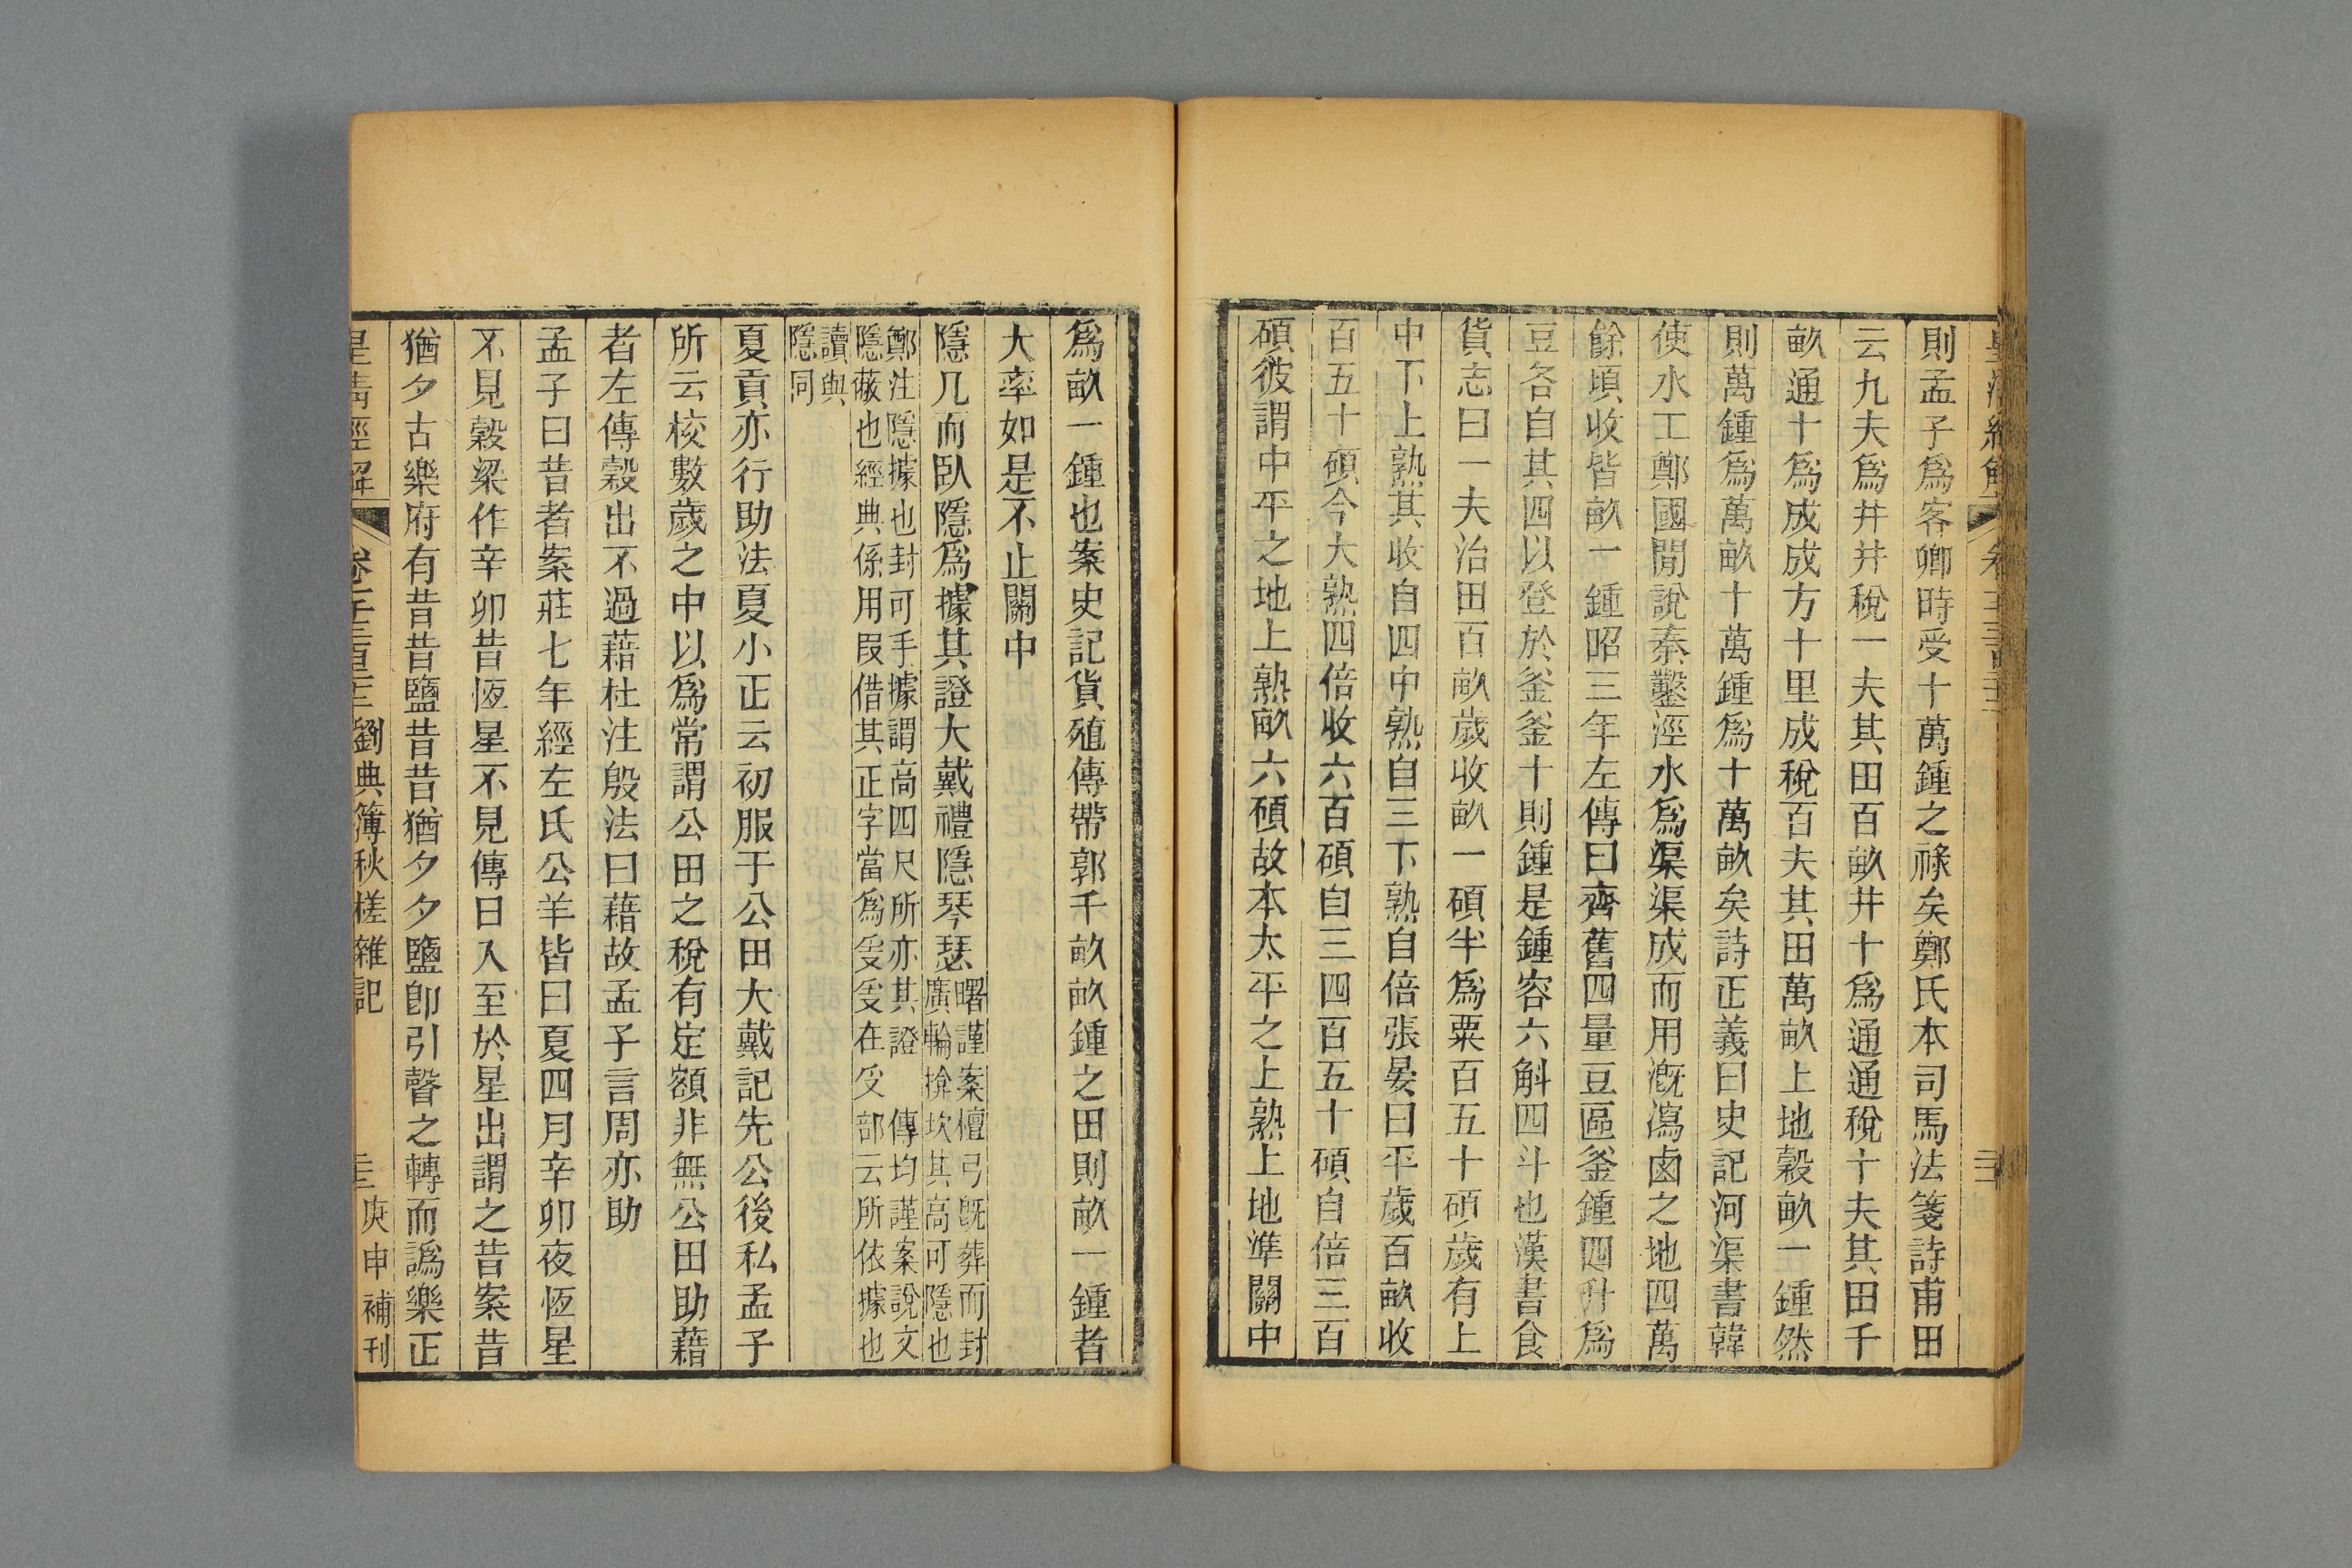 則孟子爲客卿時受十萬鍾之祿矣鄭氏本司馬法箋詩甫田
云九夫爲井井稅一夫其田百畝井十爲通通稅十夫其田千
畝通十爲成成方十里成稅百夫其田萬畝上地穀畝一鍾然
則萬鍾爲萬畝十萬鍾爲十萬畝矣詩正義曰史記河渠書韓
使水工鄭國閒說秦鑿涇水爲渠渠成而用溉潟鹵之地四萬
餘頃收皆畝一鍾昭三年左傳曰齊舊四量豆區釜鍾四升爲
豆各自其四以登於釜釜十則鍾是鍾容六斛四斗也漢書食
貨志曰一夫治田百畝歲收畝一碩半爲粟百五十碩歲有上
中下上熟其收自四中熟自三下熟自倍張晏曰平歲百畝收
百五十碩今大熟四倍收六百碩自三四百五十碩自倍三百
碩彼謂中平之地上熟畝六碩故本太平之上熟上地準關中
爲畝一鍾也案史記貨殖傳帶郭千畝畝鍾之田則畝一鍾者
大率如是不止關中
隱几而臥隱爲據其證大戴禮隱琴瑟
曙謹案檀弓旣葬而封
廣輪揜坎其高可隱也
鄭注隱據也封可手據謂高四尺所亦其證 傳均謹案說文
隱蔽也經典係用叚借其正字當爲㥯㥯在𠬪部云所依據也
讀與
隱同
夏貢亦行助法夏小正云初服于公田大戴記先公後私孟子
所云校數歲之中以爲常謂公田之稅有定額非無公田助藉
者左傳穀出不過藉杜注殷法曰藉故孟子言周亦助
孟子曰昔者案莊七年經左氏公羊皆曰夏四月辛卯夜恆星
不見穀梁作辛卯昔恆星不見傳日入至於星出謂之昔案昔
猶夕古樂府有昔昔鹽昔昔猶夕夕鹽卽引聲之轉而譌樂正
皇淸經解 劉典簿秋槎雜記
庚申補刊